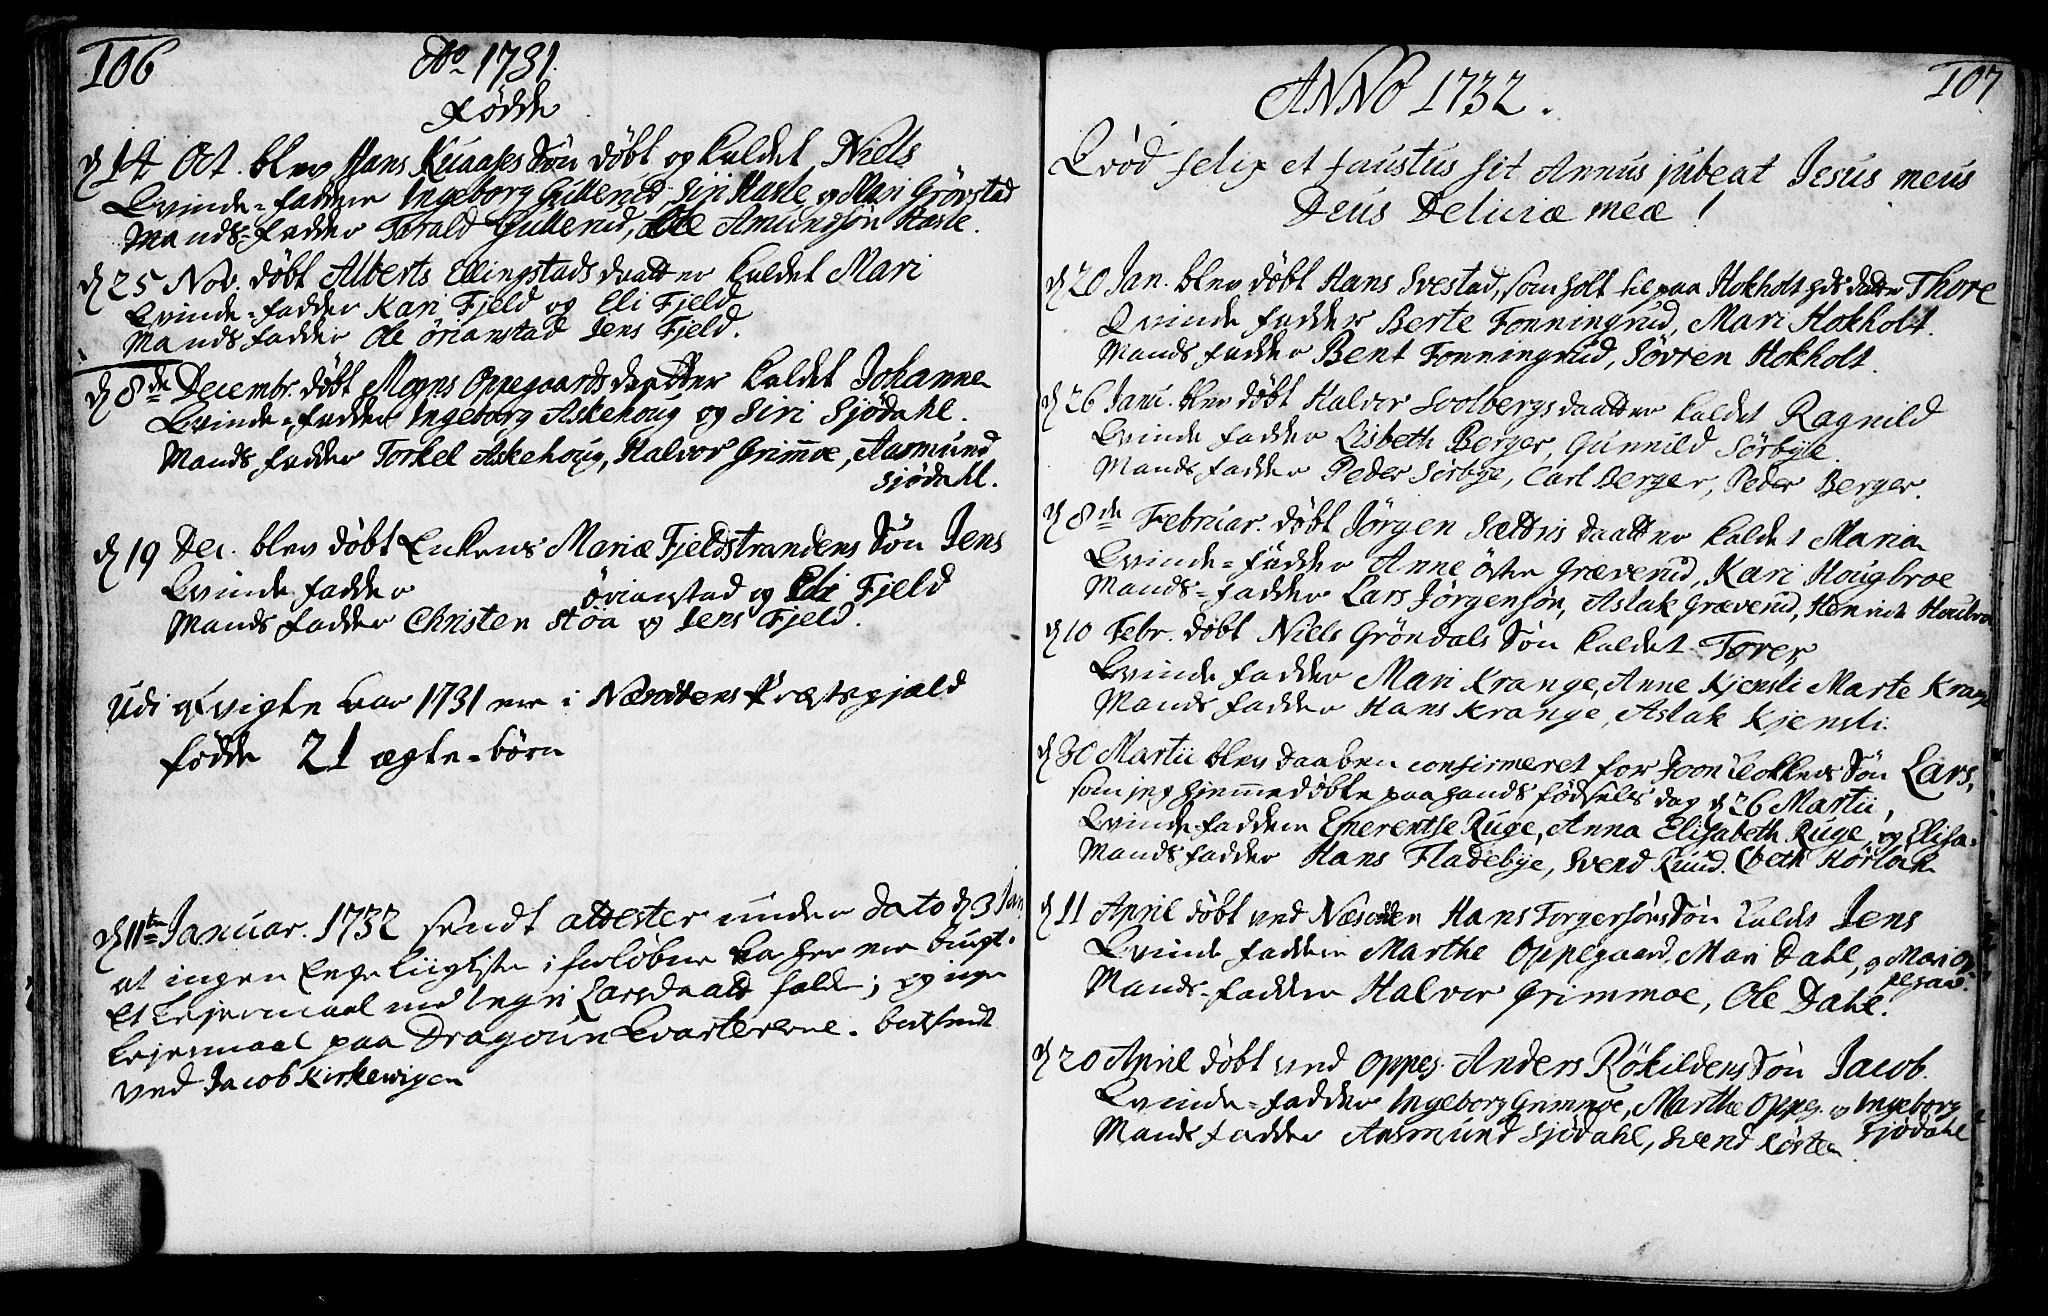 106
Ao 1731.
Fødde
d 14 Oct. blev Hans Kuaases Søn døbt og kaldet Niels
Qvinde-fadder Ingeborg Gullerud, Siri Hasle og Mari Grøvstad
Mands-fadder Torald Gullerud, Ole Amundsøn Hasle.
d 25 Nov. døbt Alberts Ellingstads daatter kaldet Mari
Qvinde-fadder Kari Fjeld og Eli Fjeld
Mands fadder Ole Ørianstad Jens Fjeld.
d 8de Decembr. døbt Mogns Oppegaards daatter kaldet Johanne
Qvinde-fadder Ingeborg Askehoug og Siri Sjødahl.
Mands fadder Torkel Askehoug, Halvor Grimmoe, Aasmund
Sjødahl.
d 19 Dec. blev døbt Enkens Mariæ Fjeldstrandens Søn Jens
Qvinde fadder Ørianstad og Eli Fjeld
Mands fadder Christen Støa og Jens Fjeld.
Udi afvigte aar 1731 ere i Næsoddens Præstegjæld
fødde 21 ægte-børn
d 11te Januar. 1732 sendt attester under dato d 3 Jan
at ingen
et Lejermaal med Ingri Larsdaatt falden; og ingen
Lejermaal paa Dragoun Qvartererne. bortsendt
ved Jacob Kirkevigen
107
ANNO 1732.
Qvod felix et faustus sit Annus jubeat Jesus meus
Deus Deliciæ meæ!
d 20 Jan. blev døbt Hans Svestad, som holt til paa Hokholt hds datter Thore
Qvinde fadder Berte Fonningrud, Mari Hokholt.
Mands fadder Bent Fonningrud, Søvren Hokholt.
d 26 Janu. blev døbt Halvor Soolbergs daatter kaldet Ragnild
Qvinde fadder Lisbeth Berger, Gunnild Sørbyle.
Mands fadder Peder Sørbye, Carl Berger, Peder Berger.
d 8de Februar. døbt Jørgen Sættris daatter kaldet Maria
Qvinde-fadder Anne Østre Græverud, Kari Hougbroe
Mands-fadder Lars Jørgensøn, Aslak Græverud, Henrich Houbroe
d 10 Febr. døbt Niels Grøndals Søn kaldet Torer
Qvinde fadder Mari Krange, Anne Kjensli Marte Krange
Mands fadder Hans Krange, Aslak Kjensli.
d 30 Martii blev daaben confirmeret for Joon Klokkers Søn Lars,
som jeg hjemmedøbte paa hands fødsels dag d 26 Martii,
Qvinde faddere Emerentse Ruge, Anna Elisabeth Ruge, og Elisa-
Mands fadder Hans Fladebye, Svend Ruud. (beth Hørlak
d 11 April døbt ved Næsodden Hans Torgersøns Søn kaldt Jens
Qvinde faddere Marthe Oppegaard, Mari Dahl, og Mari Op-
pegaar.
Mands-faddere Halvor Grimmoe, Ole Dahl.
d 20 April døbt ved Oppeg. Anders Røkildens Søn Jacob.
Qvinde-fadder Ingeborg Grimmoe, Marthe Oppeg. og Ingeborg
Sjødahl
Mands fadder Aasmund Sjødahl, Svend Kosten.